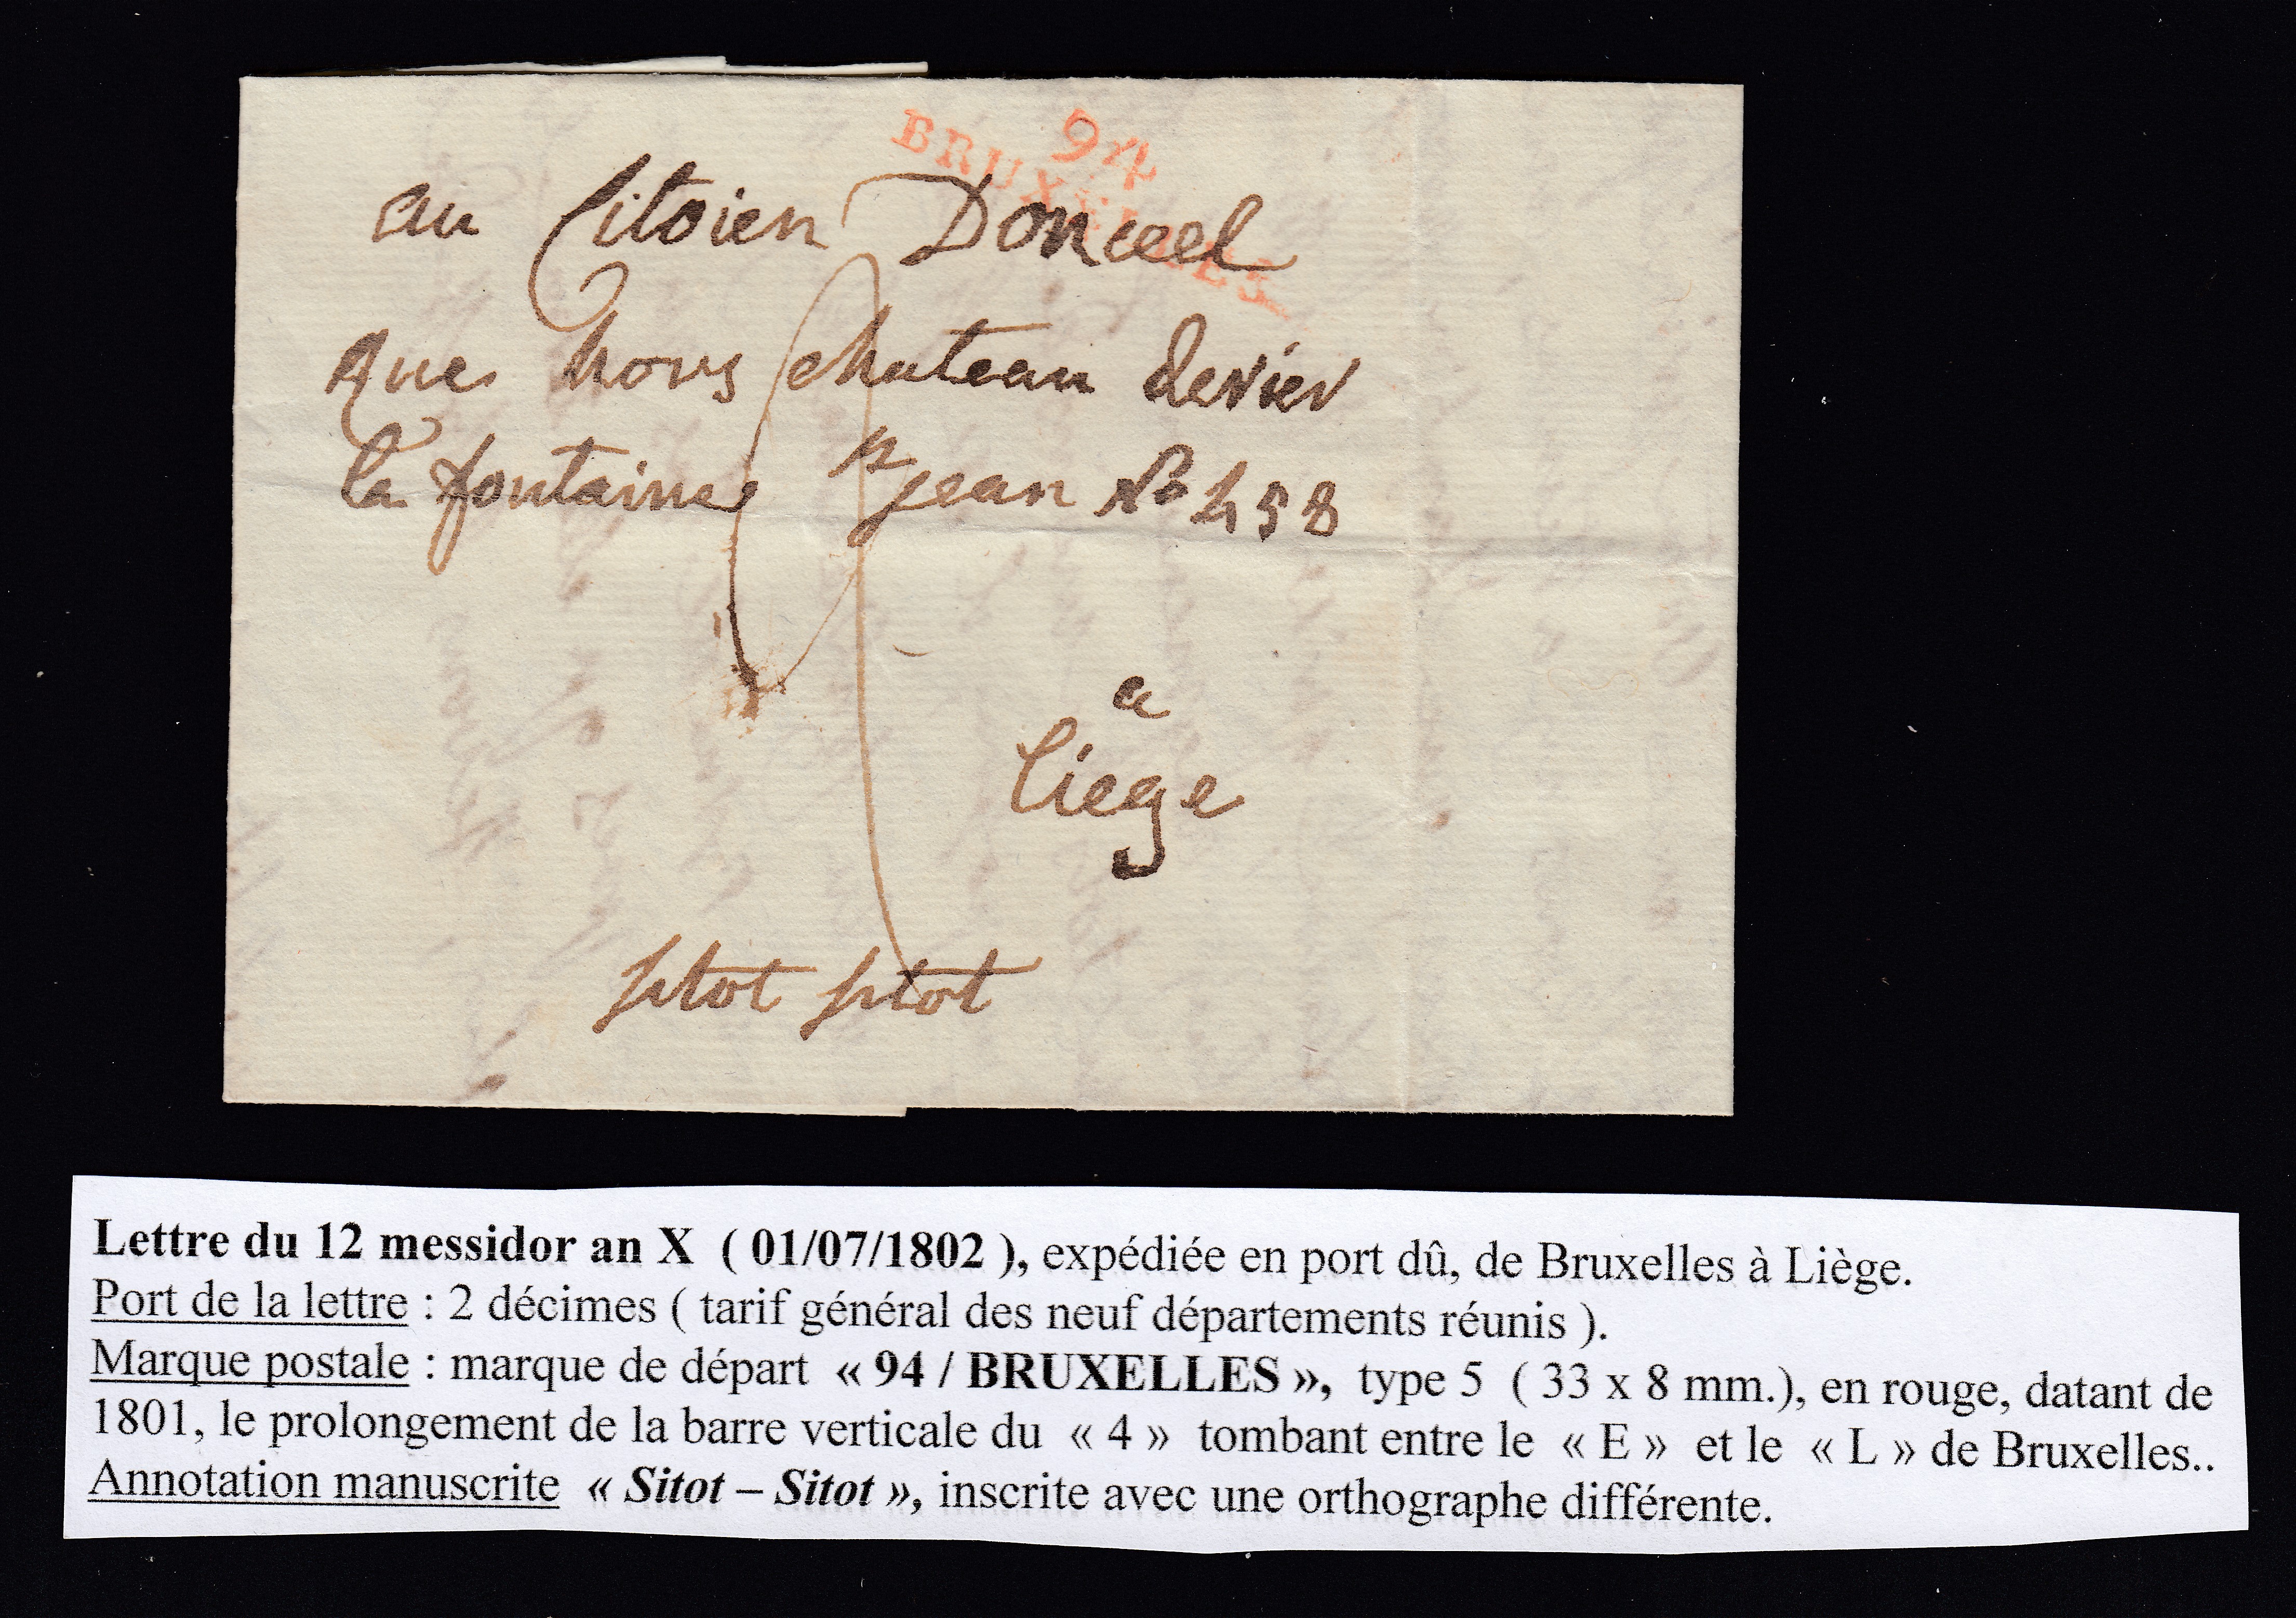 94
BRUXELLES
au Citoien Donceel
que hors chateau derier
la fontaine st jean No 458
a
liege
sitot sitot
Lettre du 12 messidor an X ( 01/07/1802 ), expédiée en port dû, de Bruxelles à Liège.
Port de la lettre : 2 décimes ( tarif général des neuf départements réunis ).
Marque postale : marque de départ « 94 / BRUXELLES », type 5 ( 33 x 8 mm.), en rouge, datant de
1801, le prolongement de la barre verticale du « 4 » tombant entre le « E » et le « L » de Bruxelles..
Annotation manuscrite « Sitot – Sitot », inscrite avec une orthographe différente.